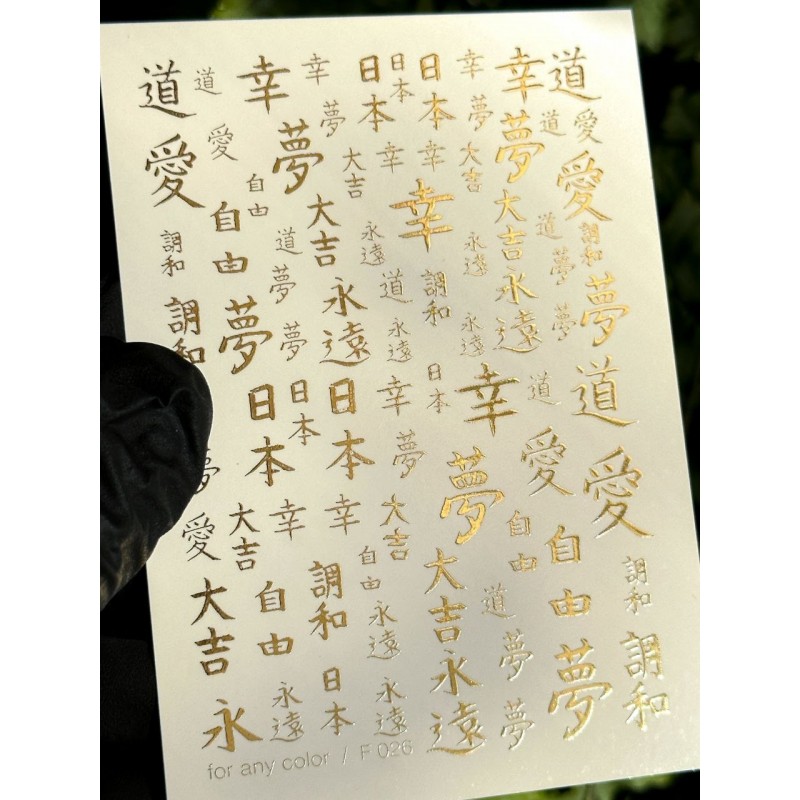 道
道
幸
幸
日本
日本
日本
幸
幸
道
愛
愛
夢
夢
大吉
幸
幸
夢
大吉
夢
道
愛
愛
調和
自由
自由
道
大吉
永遠
幸
永遠
大吉
道
夢
調和
調和
夢
夢
夢
永遠
道
永遠
調和
永遠
永遠
夢
夢
日本
日本
日本
幸
日本
幸
道
道
夢
夢
夢
愛
愛
愛
大吉
幸
幸
大吉
自由
自由
大吉
自由
調和
自由
永遠
大吉
道
夢
調和
永
永遠
日本
永遠
永遠
夢
夢
調和
for any color / F 026